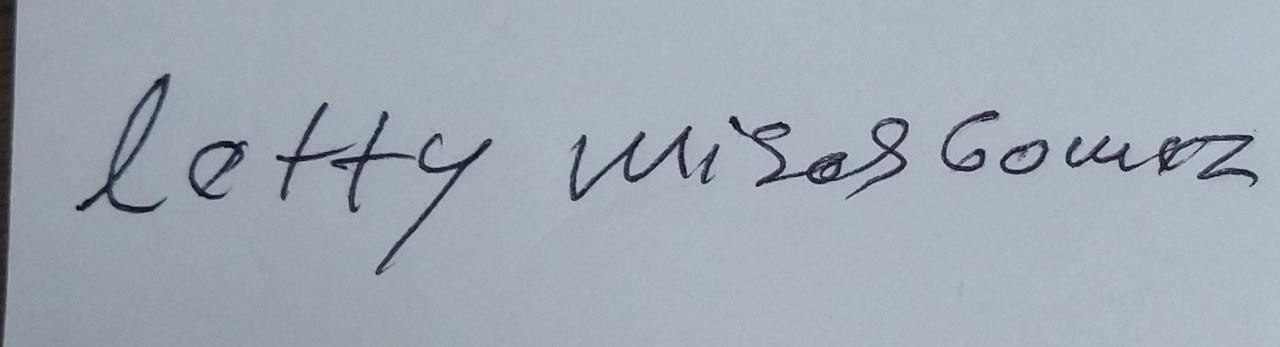 letty Misas Gomez